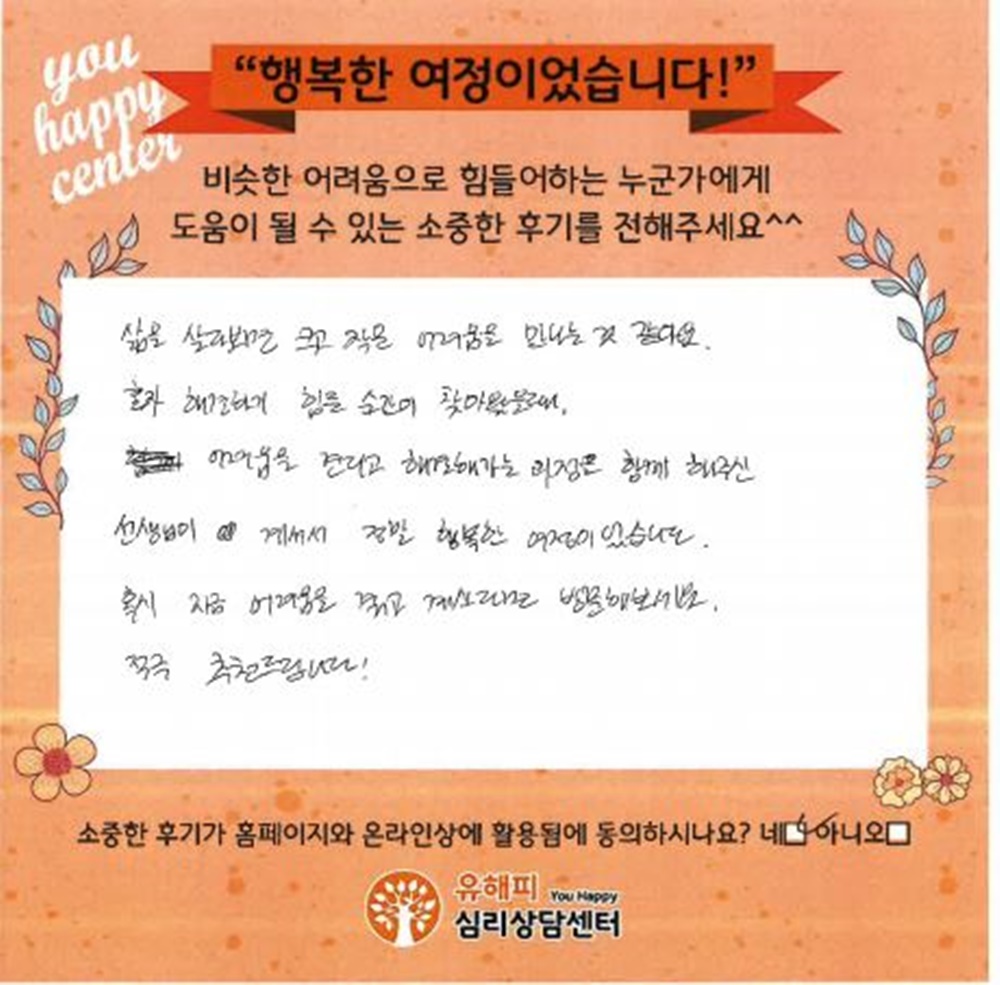 you
happy
center
“행복한 여정이었습니다!”
비슷한 어려움으로 힘들어하는 누군가에게
도움이 될 수 있는 소중한 후기를 전해주세요^^
삶을 살다보면 크고 작은 어려움을 만나는 것 같아요.
혼자 해결하기 힘든 순간이 찾아왔을때,
어려움을 견디고 해결해가는 과정을 함께 해주신
선생님이 계셔서 정말 행복한 여정이었습니다.
혹시 지금 어려움을 겪고 계신다면 방문해보세요.
적극 추천드립니다!
소중한 후기가 홈페이지와 온라인상에 활용됨에 동의하시나요? 네☑ 아니오☐
유해피 You Happy
심리상담센터